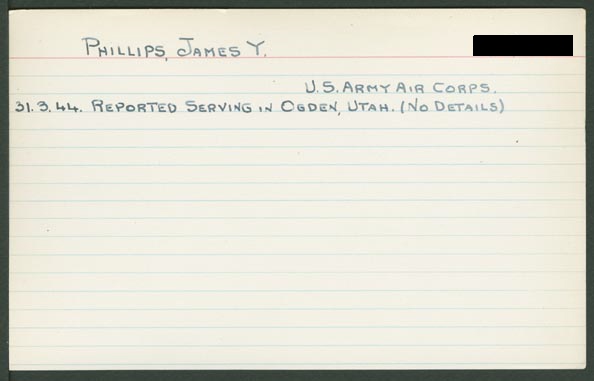 PHILLIPS, JAMES Y.
U.S. ARMY AIR CORPS.
31.3.44. REPORTED SERVING IN OGDEN, UTAH. (NO DETAILS)